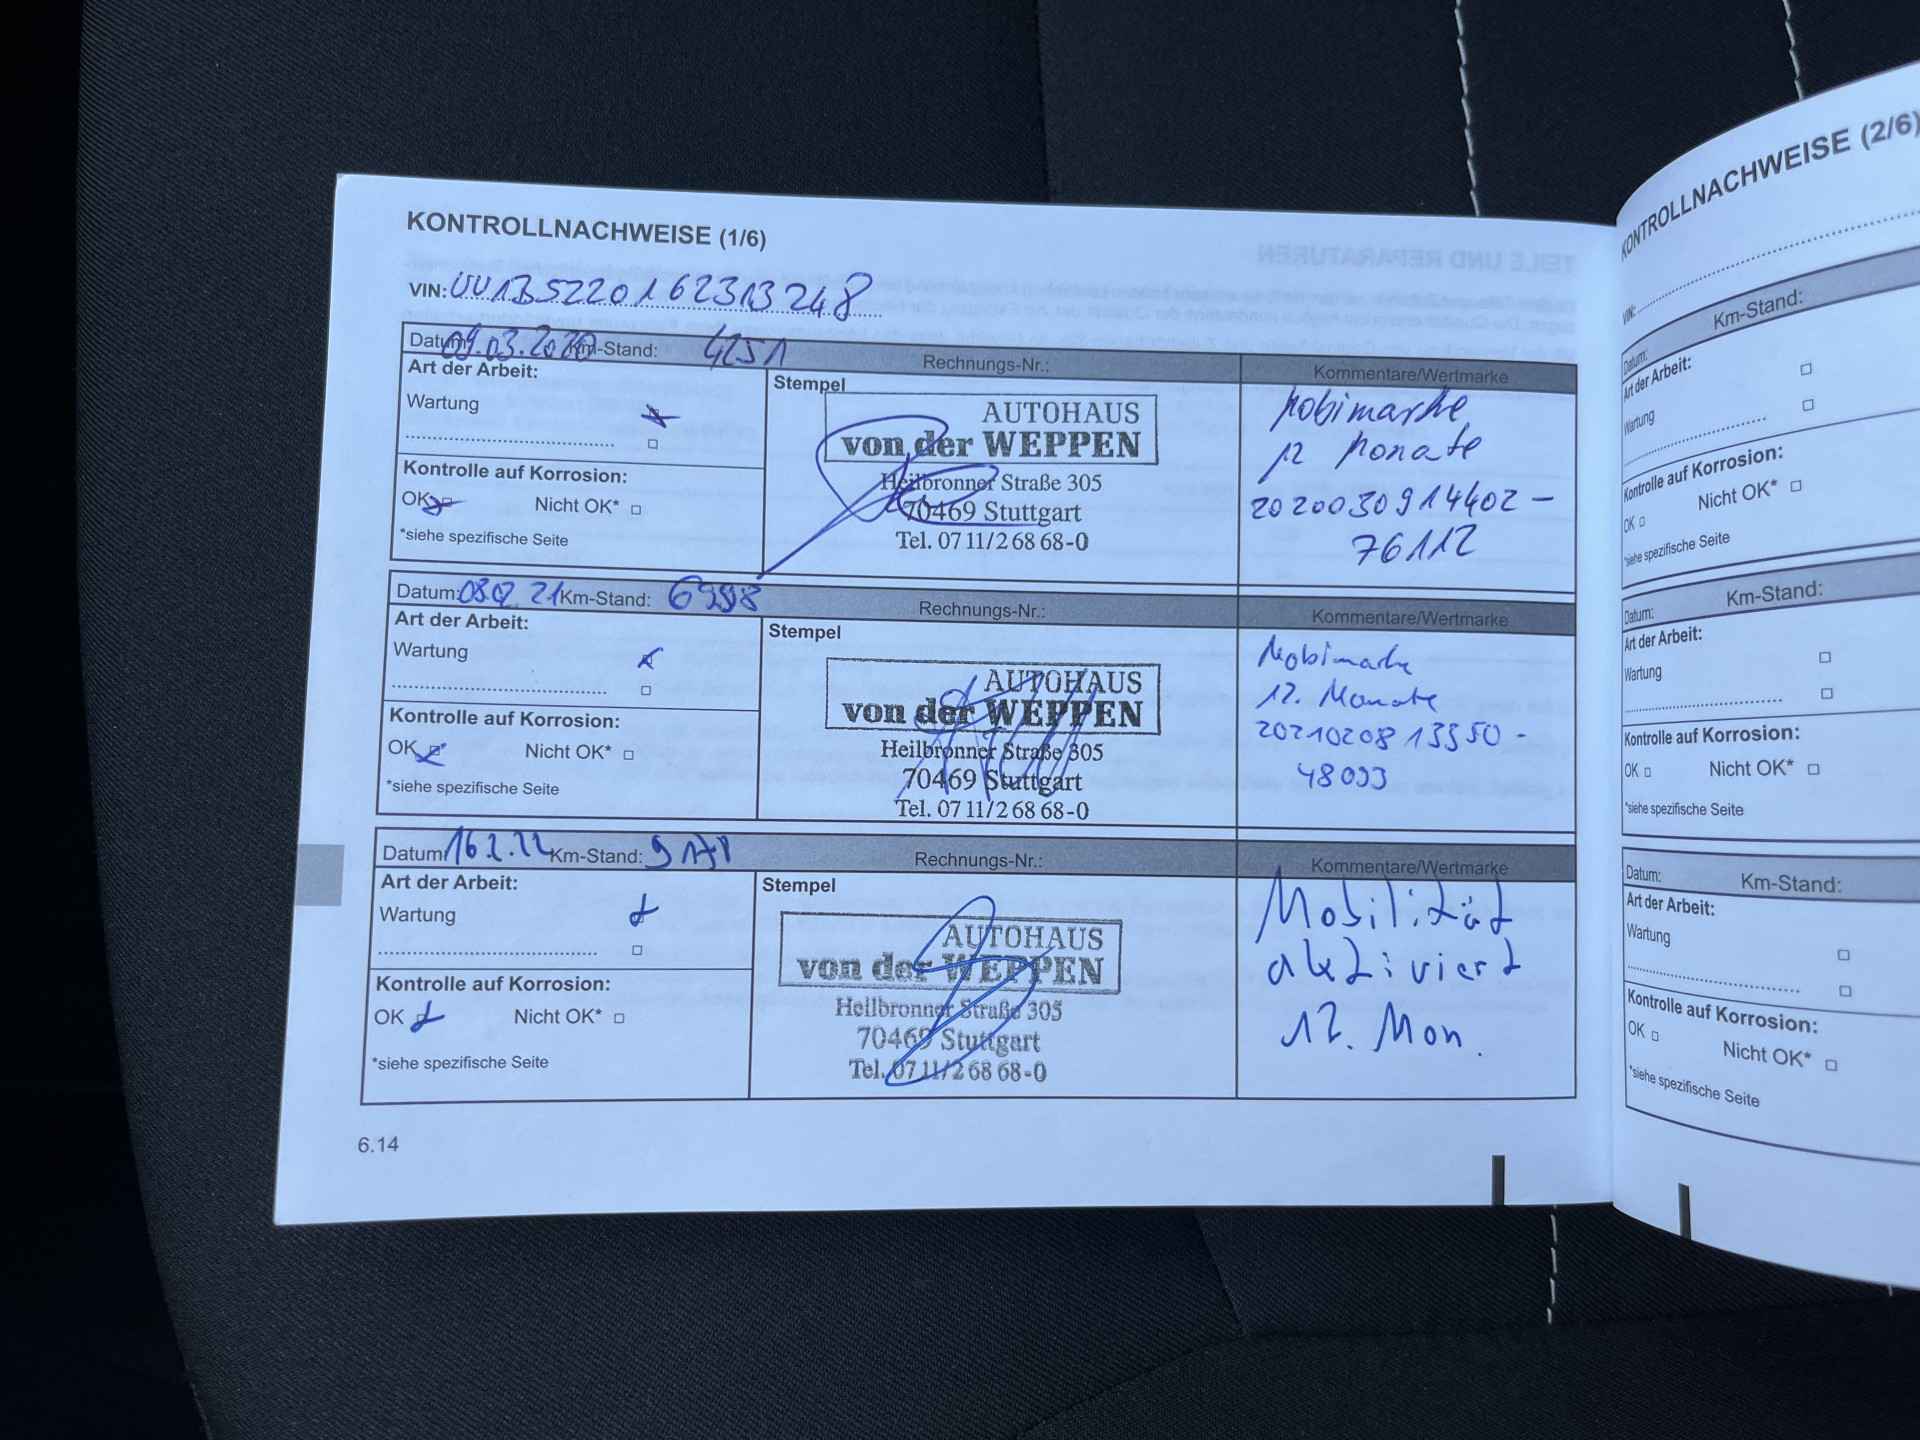 KONTROLLNACHWEISE (1/6)
TEILE UND REPARATUREN
VIN: UU1B5220162313248
Datum: 09.03.2020 Km-Stand: 4251 Rechnungs-Nr.: Kommentare/Wertmarke
Art der Arbeit:
Wartung
Kontrolle auf Korrosion:
OK Nicht OK*
*siehe spezifische Seite
Stempel
AUTOHAUS
von der WEPPEN
Heilbronner Straße 305
70469 Stuttgart
Tel. 07 11/2 68 68-0
Mobimarke
12 Monate
2020030914402-
76112
Datum: 08.02.21 Km-Stand: 6998 Rechnungs-Nr.: Kommentare/Wertmarke
Art der Arbeit:
Wartung
Kontrolle auf Korrosion:
OK Nicht OK*
*siehe spezifische Seite
Stempel
AUTOHAUS
von der WEPPEN
Heilbronner Straße 305
70469 Stuttgart
Tel. 07 11/2 68 68-0
Mobimarke
12. Monate
2021020813350-
48093
Datum: 16.2.22 Km-Stand: Rechnungs-Nr.: Kommentare/Wertmarke
Art der Arbeit:
Wartung
Kontrolle auf Korrosion:
OK Nicht OK*
*siehe spezifische Seite
Stempel
AUTOHAUS
von der WEPPEN
Heilbronner Straße 305
70469 Stuttgart
Tel. 07 11/2 68 68-0
Mobilität
aktiviert
12. Mon.
6.14
KONTROLLNACHWEISE (2/6)
VIN:
Datum: Km-Stand:
Art der Arbeit:
Wartung
Kontrolle auf Korrosion:
OK Nicht OK*
*siehe spezifische Seite
Datum: Km-Stand:
Art der Arbeit:
Wartung
Kontrolle auf Korrosion:
OK Nicht OK*
*siehe spezifische Seite
Datum: Km-Stand:
Art der Arbeit:
Wartung
Kontrolle auf Korrosion:
OK Nicht OK*
*siehe spezifische Seite